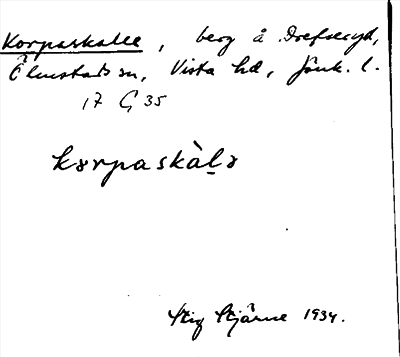 Korpaskalle, berg å Drefseryd,
Ölmstads sn, Vista hd, Jönk. l.
17 G 35
kɤrpaskàlɤ
Stig Stjärne 1934.